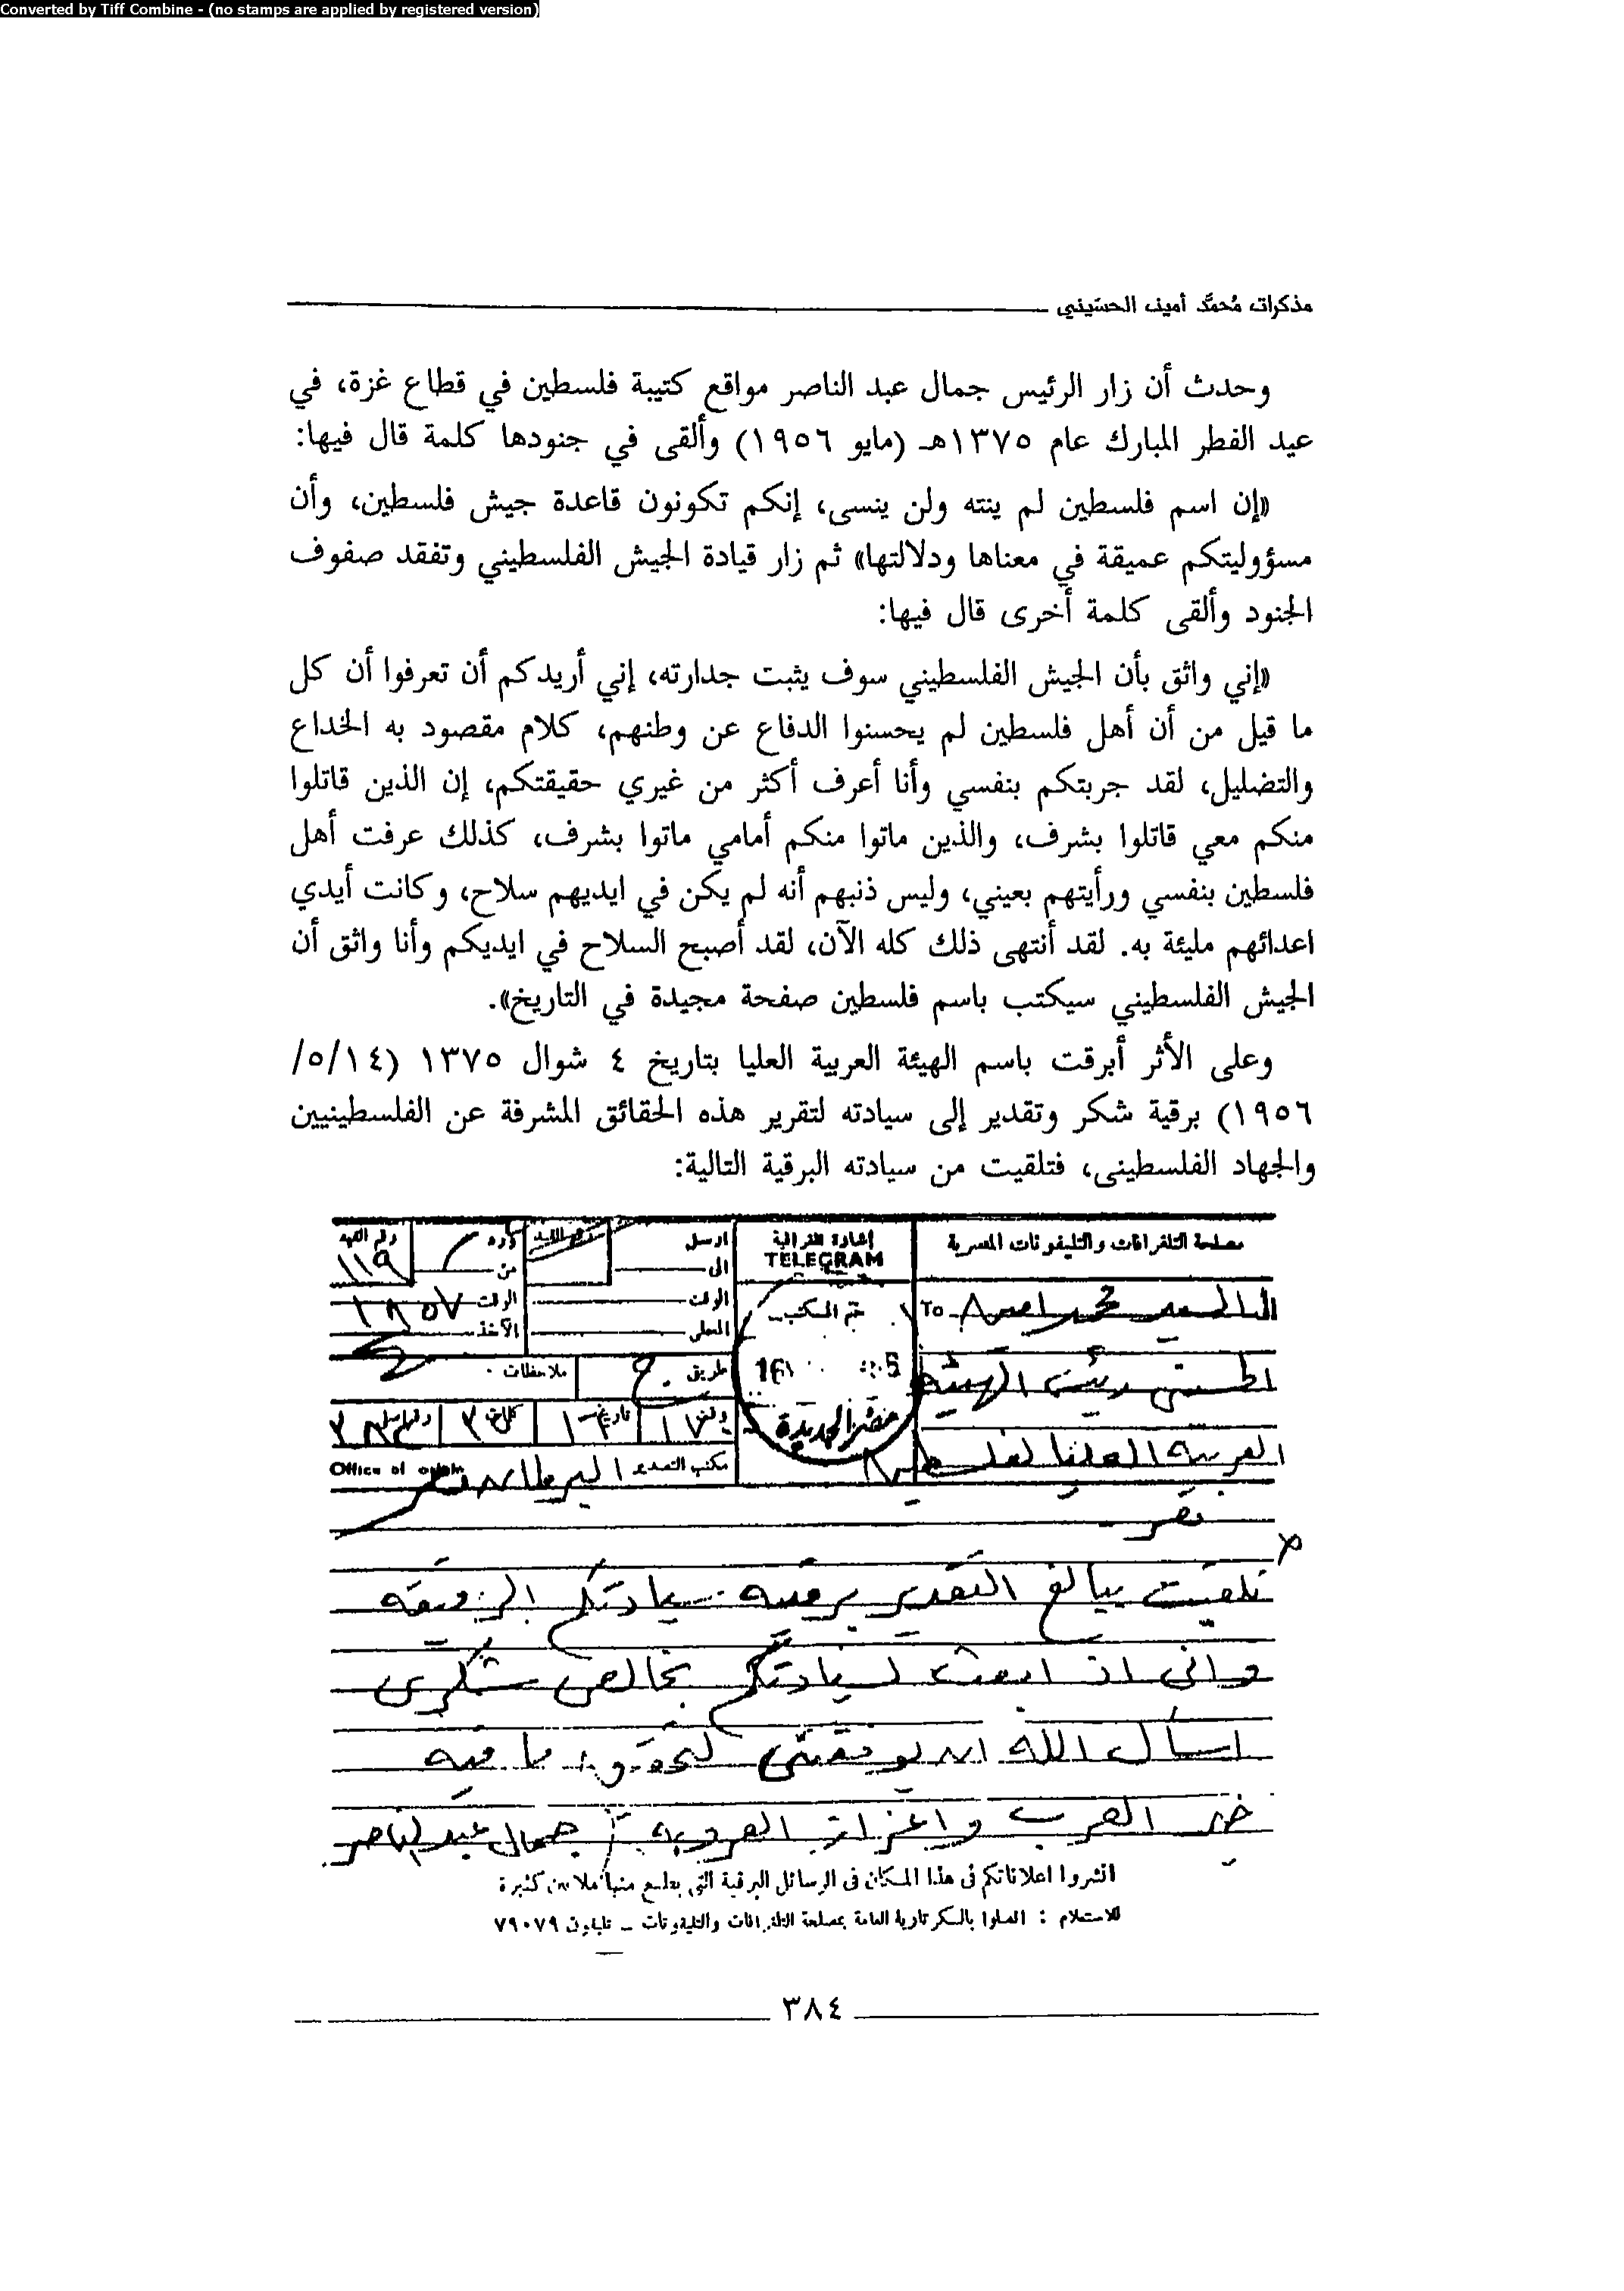 Converted by Tiff Combine - (no stamps are applied by registered version)
مذكرات مُحمَّد أمين الحسَيني
وحدث أن زار الرئيس جمال عبد الناصر مواقع كتيبة فلسطين في قطاع غزة، في
عيد الفطر المبارك عام ١٣٧٥هـ (مايو ١٩٥٦) وألقى في جنودها كلمة قال فيها:
«إن اسم فلسطين لم ينته ولن ينسى، إنكم تكونون قاعدة جيش فلسطين، وأن
مسؤوليتكم عميقة في معناها ودلالتها» ثم زار قيادة الجيش الفلسطيني وتفقد صفوف
الجنود وألقى كلمة أخرى قال فيها:
«إني واثق بأن الجيش الفلسطيني سوف يثبت جدارته، إني أريدكم أن تعرفوا أن كل
ما قيل من أن أهل فلسطين لم يحسنوا الدفاع عن وطنهم، كلام مقصود به الخداع
والتضليل، لقد جربتكم بنفسي وأنا أعرف أكثر من غيري حقيقتكم، إن الذين قاتلوا
منكم معي قاتلوا بشرف، والذين ماتوا منكم أمامي ماتوا بشرف، كذلك عرفت أهل
فلسطين بنفسي ورأيتهم بعيني، وليس ذنبهم أنه لم يكن في ايديهم سلاح، وكانت أيدي
اعدائهم مليئة به. لقد أنتهى ذلك كله الآن، لقد أصبح السلاح في ايديكم وأنا واثق أن
الجيش الفلسطيني سيكتب باسم فلسطين صفحة مجيدة في التاريخ».
وعلى الأثر أبرقت باسم الهيئة العربية العليا بتاريخ ٤ شوال ١٣٧٥ (٥/١٤/
١٩٥٦) برقية شكر وتقدير إلى سيادته لتقرير هذه الحقائق المشرفة عن الفلسطينيين
والجهاد الفلسطيني، فتلقيت من سيادته البرقية التالية:
مصلحة التلغرافات والتليفونات المصرية
إشارة تلغرافية
TELEGRAM
ارسل
الى
الوقت
رقم القيد
١١٩
من
الوقت ١٨٥٧
الآخذ
ختم المكتب
To
الى السيد محمد امين
الحسيني رئيس الهيئة
العربية العليا لفلسطين
طريق
ملاحظات
16
مصر الجديدة
تاريخ
مكتب التصدير البرلمان مصر
Office of origin
مصر
تلقيت ببالغ التقدير برقية سيادتكم الرقيقة
وانى اذ ابعث لسيادتكم بخالص شكرى
اسأل الله ان يوفقنى لتحقيق ما فيه
خير العرب واعزاز العروبة جمال عبد الناصر
انشروا اعلاناتكم فى هذا المكان فى الرسائل البرقية التى يطبع منها ملايين كثيرة
للاستعلام : اتصلوا بالسكرتارية العامة بمصلحة التلغرافات والتليفونات – تليفون ٧٩٠٧٩
٣٨٤